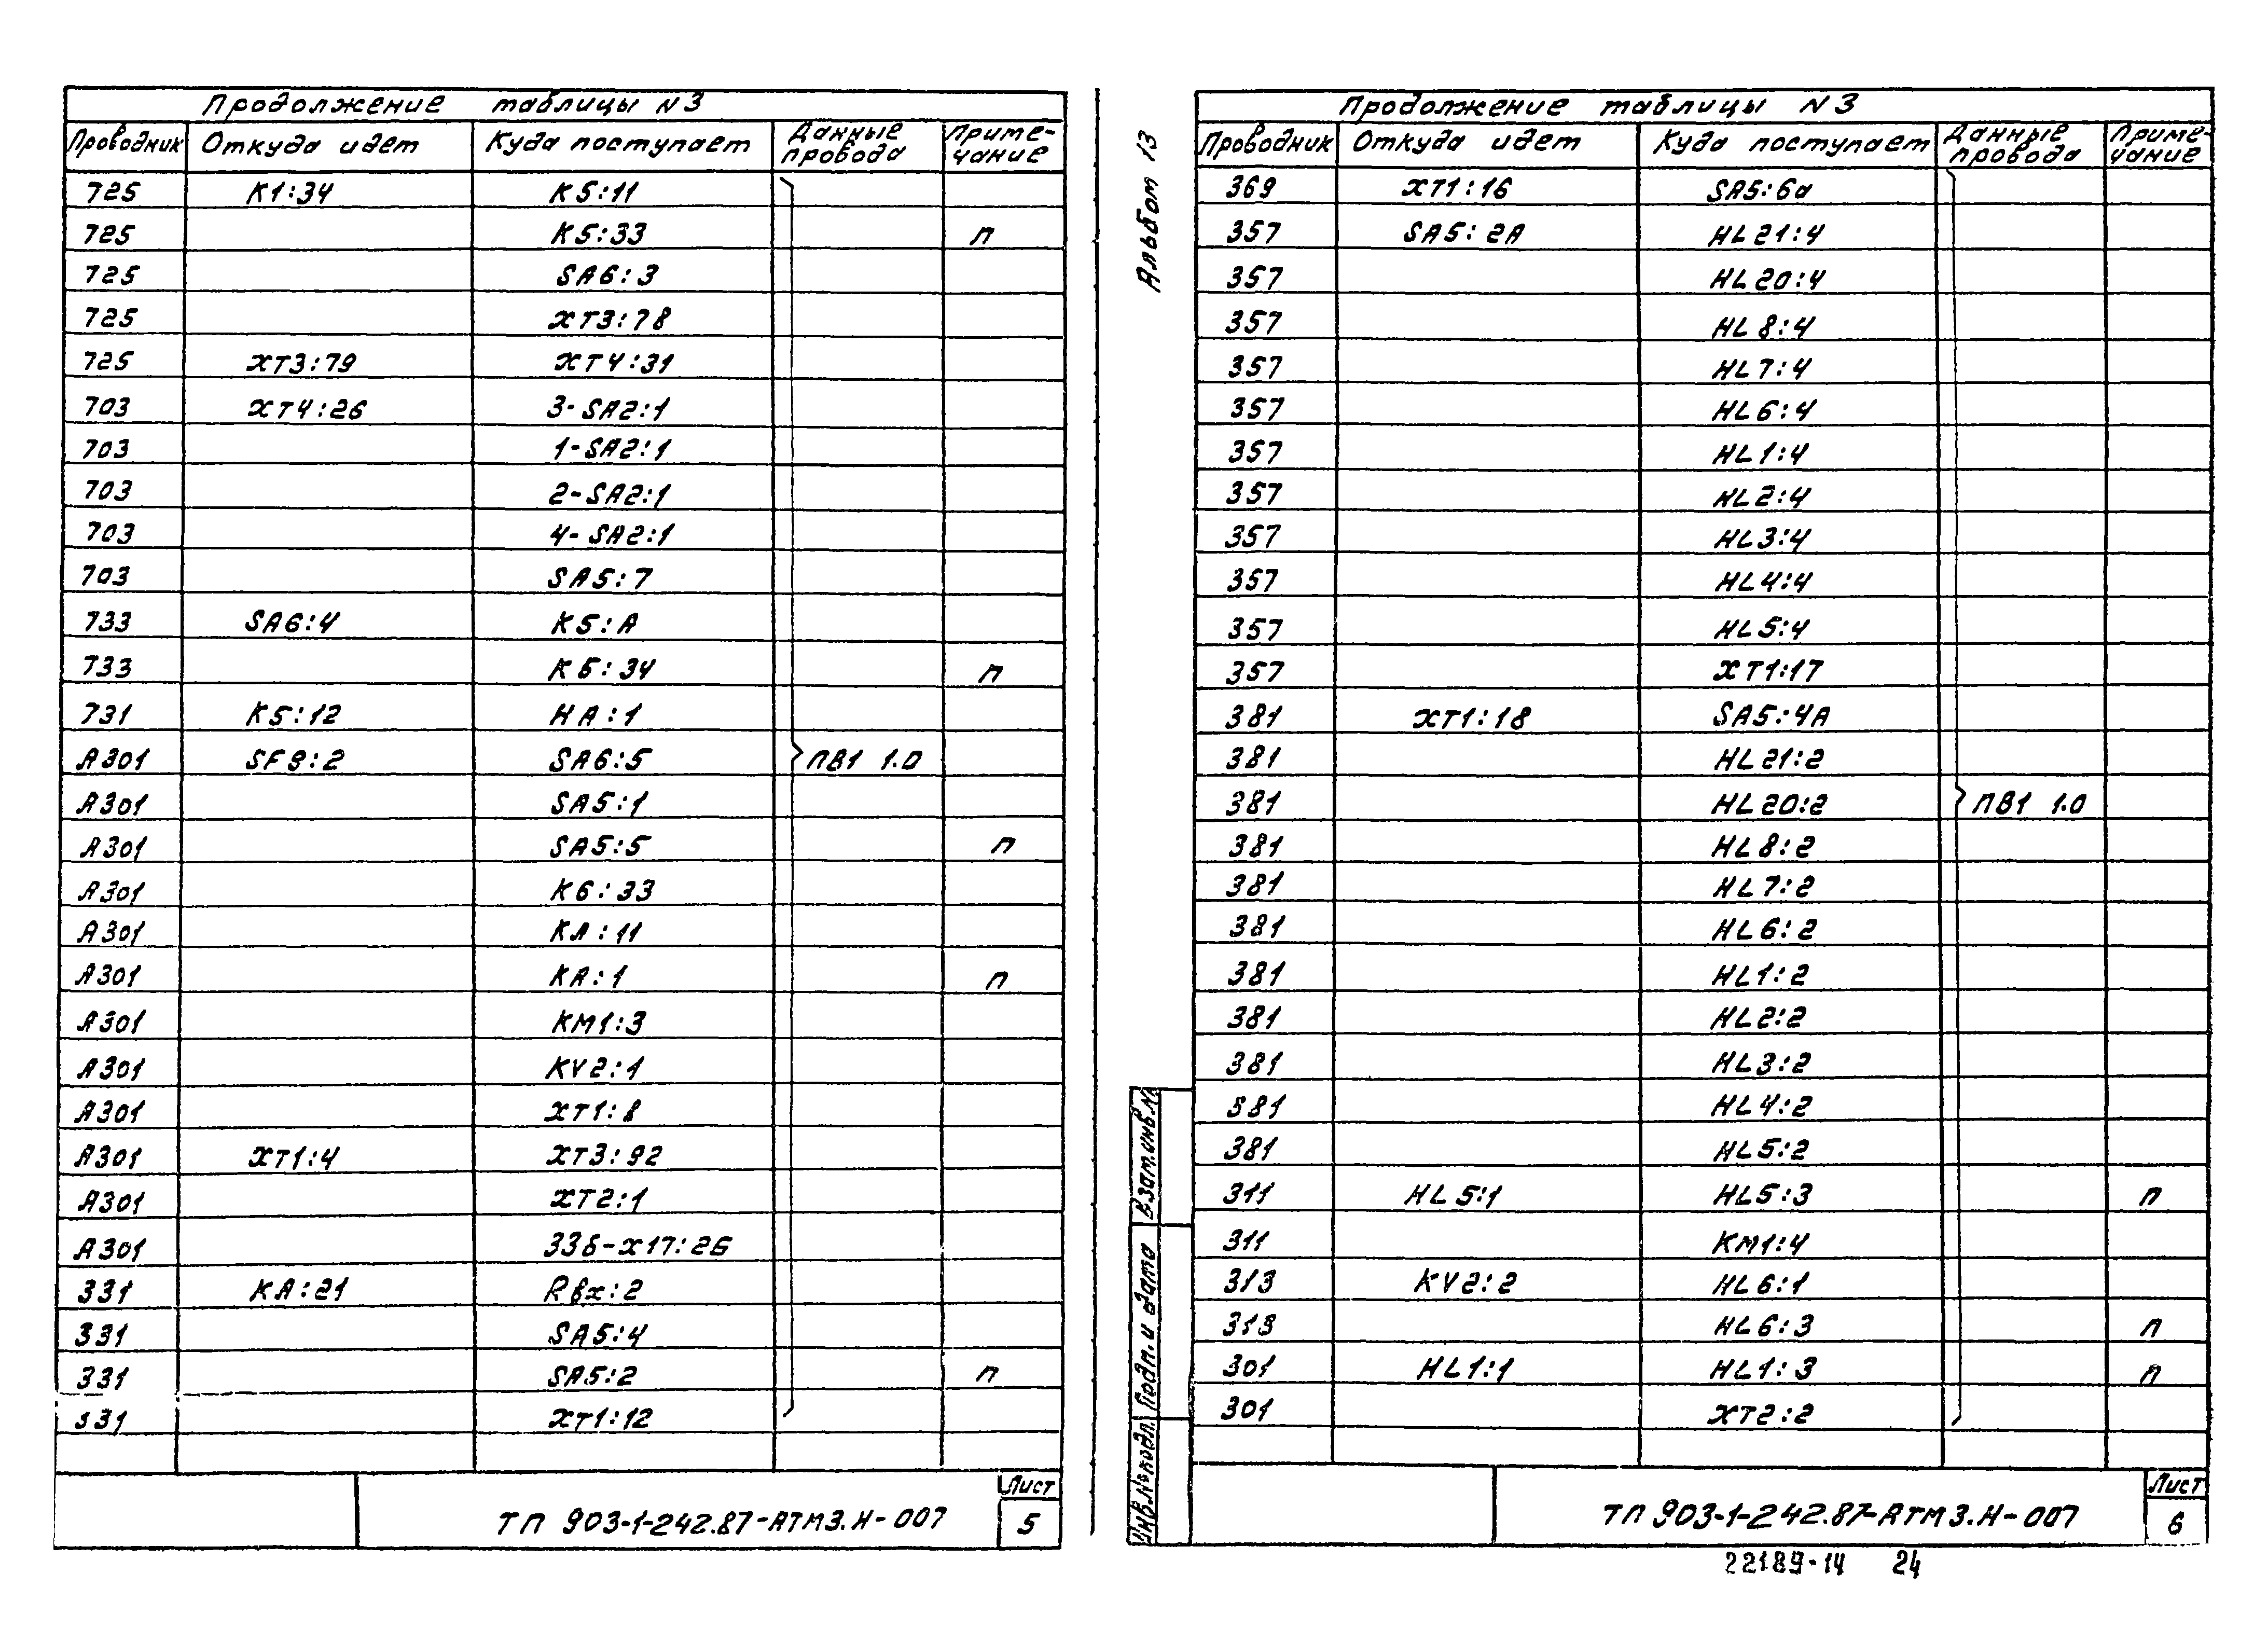 Продолжение таблицы N3
Проводник Откуда идет Куда поступает Данные провода Примечание
725 К1:34 К5:11
725 К5:33 п
725 SA6:3
725 ХТ3:78
725 ХТ3:79 ХТ4:31
703 ХТ4:26 3-SA2:1
703 1-SA2:1
703 2-SA2:1
703 4-SA2:1
703 SA5:7
733 SA6:4 К5:А
733 К5:34 п
731 К5:12 НА:1
А301 SF9:2 SA6:5 ПВ1 1.0
А301 SA5:1
А301 SA5:5 п
А301 К6:33
А301 КА:11
А301 КА:1 п
А301 КМ1:3
А301 KV2:1
А301 ХТ1:8
А301 ХТ1:4 ХТ3:92
А301 ХТ2:1
А301 33б-Х17:2Б
331 КА:21 Rвх:2
331 SA5:4
331 SA5:2 п
331 ХТ1:12
Лист
ТП 903-1-242.87-АТМ3.Н-007 5
Альбом 13
Продолжение таблицы N3
Проводник Откуда идет Куда поступает Данные провода Примечание
369 ХТ1:16 SA5:6а
357 SA5:2А HL21:4
357 HL20:4
357 HL8:4
357 HL7:4
357 HL6:4
357 HL1:4
357 HL2:4
357 HL3:4
357 HL4:4
357 HL5:4
357 ХТ1:17
381 ХТ1:18 SA5:4А
381 HL21:2
381 HL20:2 ПВ1 1.0
381 HL8:2
381 HL7:2
381 HL6:2
381 HL1:2
381 HL2:2
381 HL3:2
381 HL4:2
381 HL5:2
311 HL5:1 HL5:3 п
311 КМ1:4
313 KV2:2 HL6:1
313 HL6:3 п
301 HL1:1 HL1:3 п
301 ХТ2:2
Взам.инв.№
Подп. и дата
Инв.№подл.
Лист
ТП 903-1-242.87-АТМ3.Н-007 6
22189-14 24